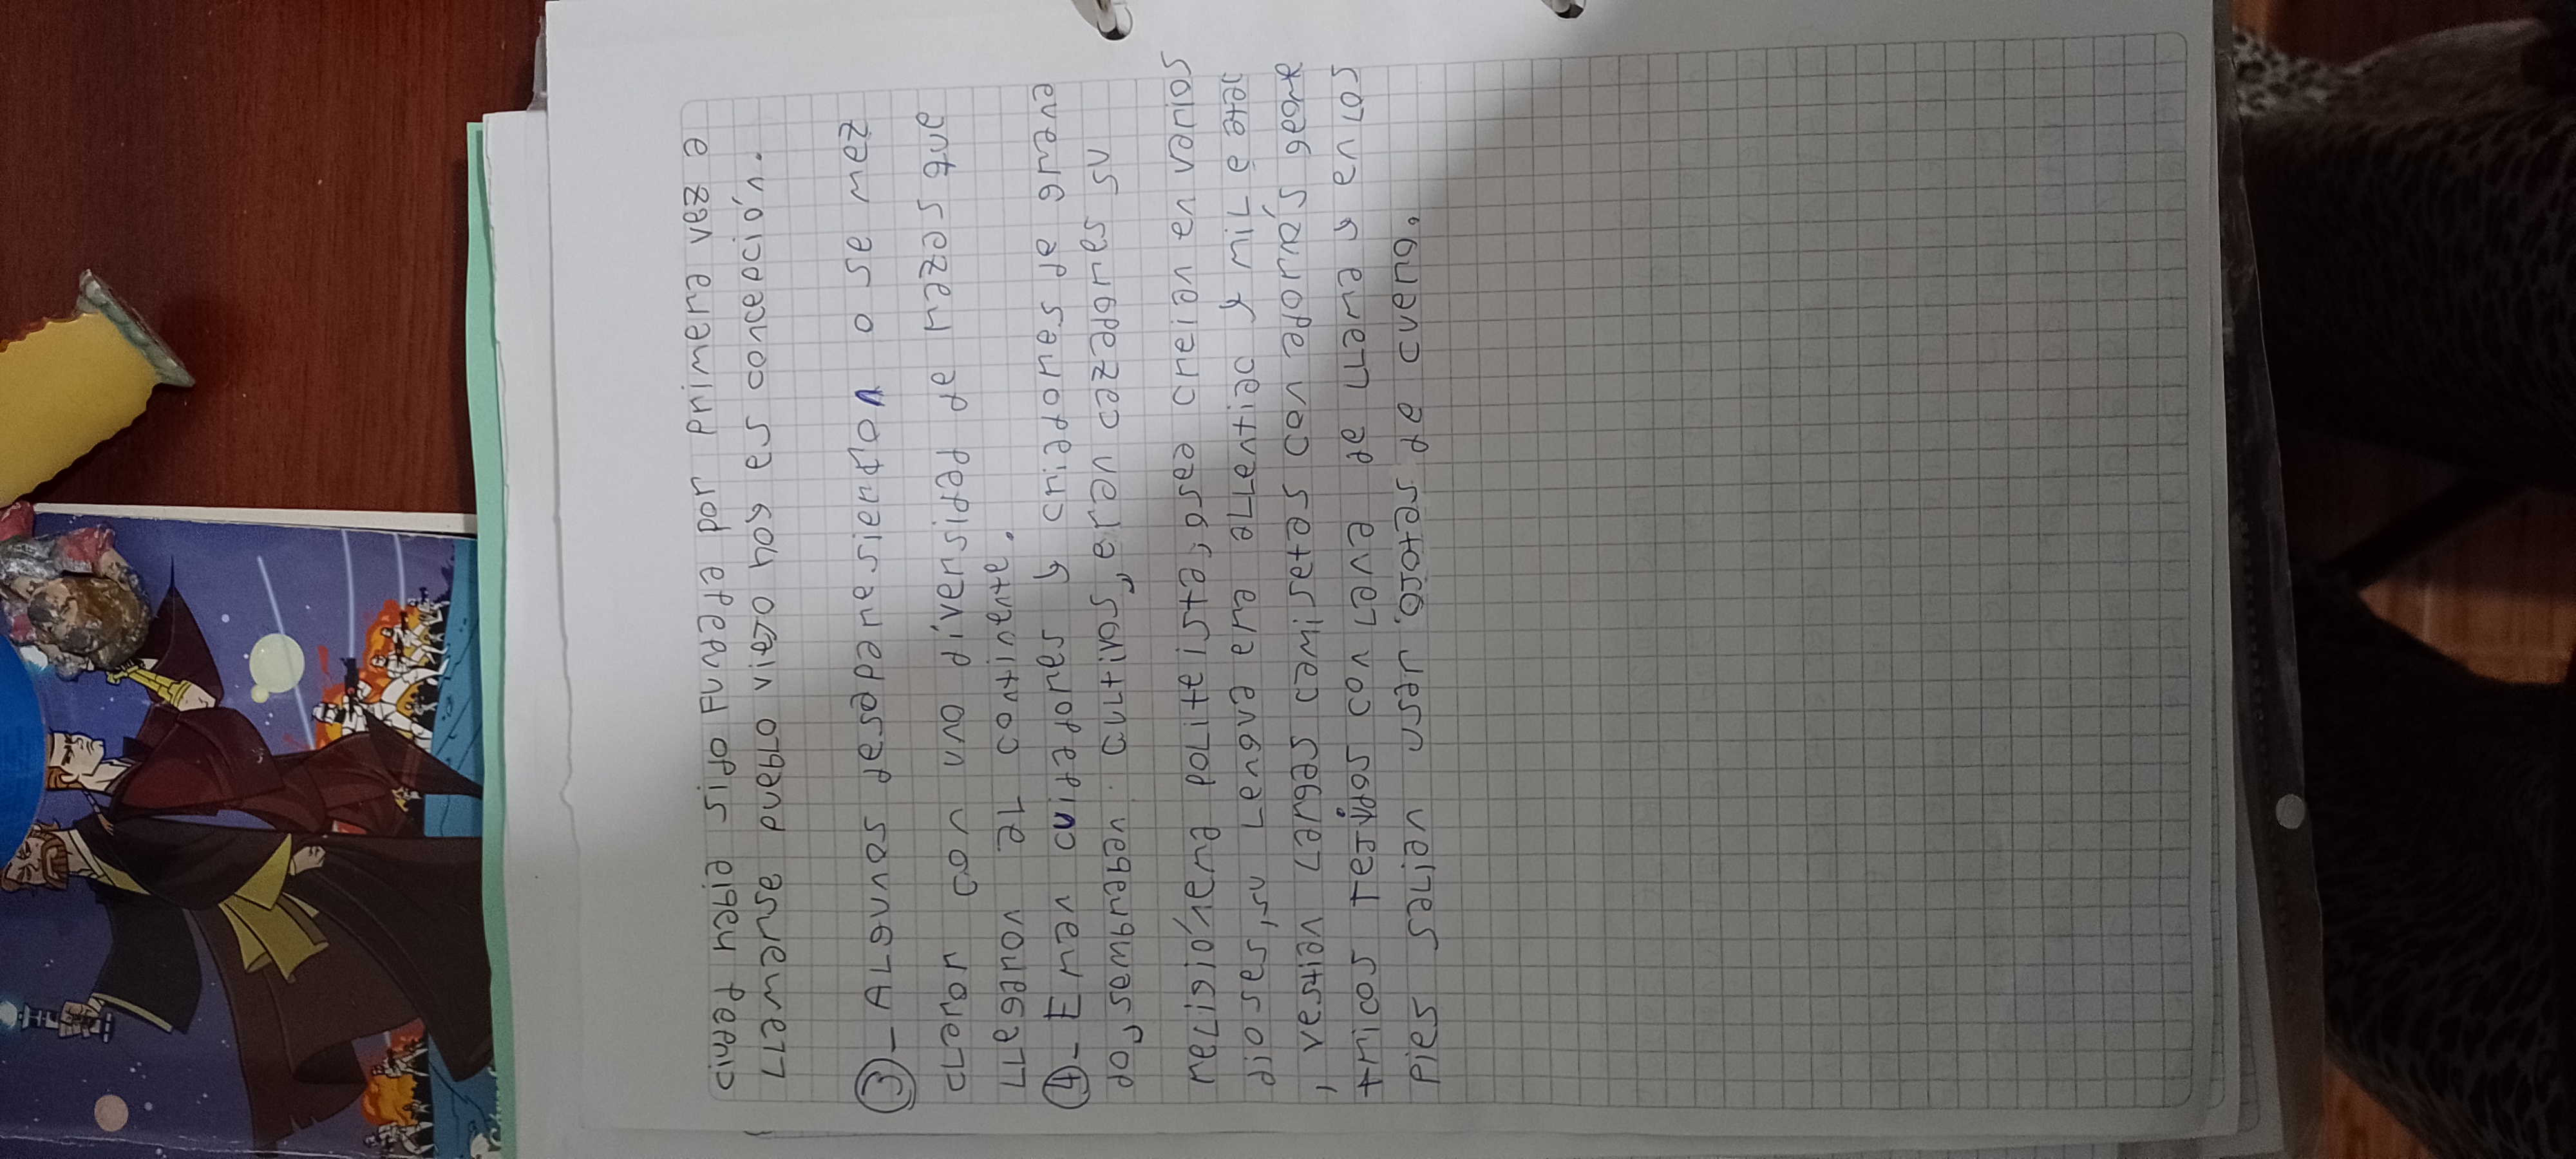 ciudad había sido fundada por primera vez a
llamarse pueblo viejo hoy es concección.
③- Algunos desaparesierdon o se mez
claron con una diversidad de razas que
llegaron al continente.
④- Eran cuidadores y criadores de grana
do, sembraban cultivos, eran cazadores su
religión era politeista, osea creian en varios
dioses, su lengua era y
vestian larges camisetas con adornos geome
tricos tejidos con lana de llama y en los
pies salian usar ojotas de cuero.